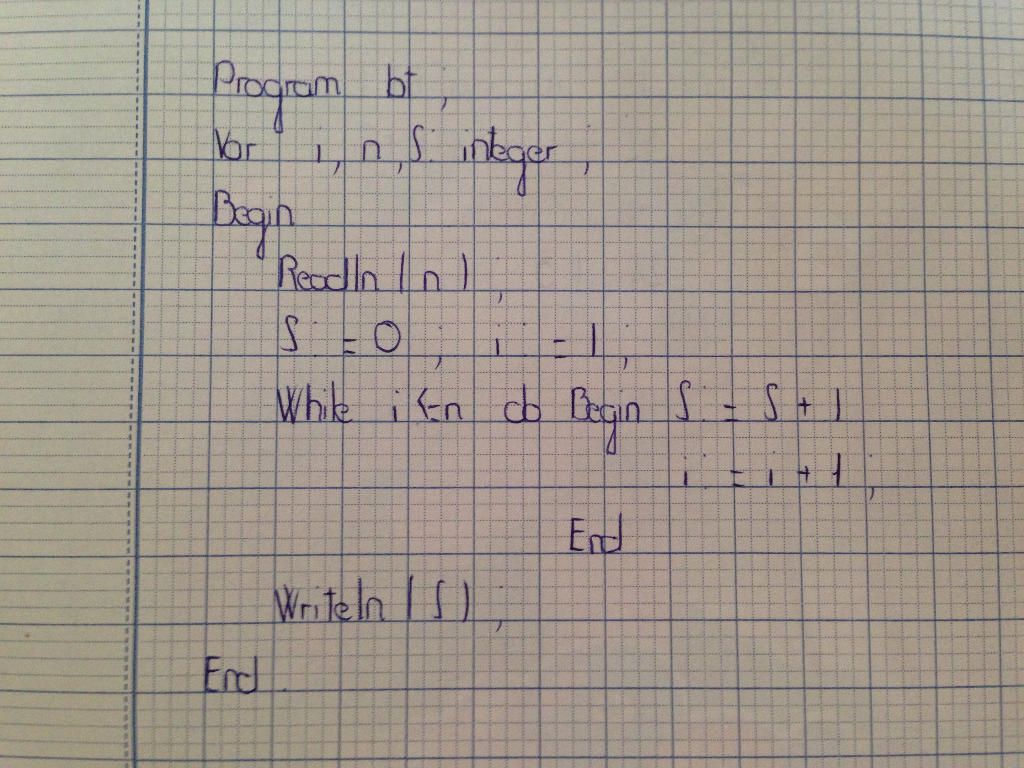 Program bt ;
Var i, n, S : integer ;
Begin
Readln ( n ) ;
S : = 0 ; i : = 1 ;
While i <= n do Begin S : = S + 1
i : = i + 1 ;
End
Writeln ( S ) ;
End .